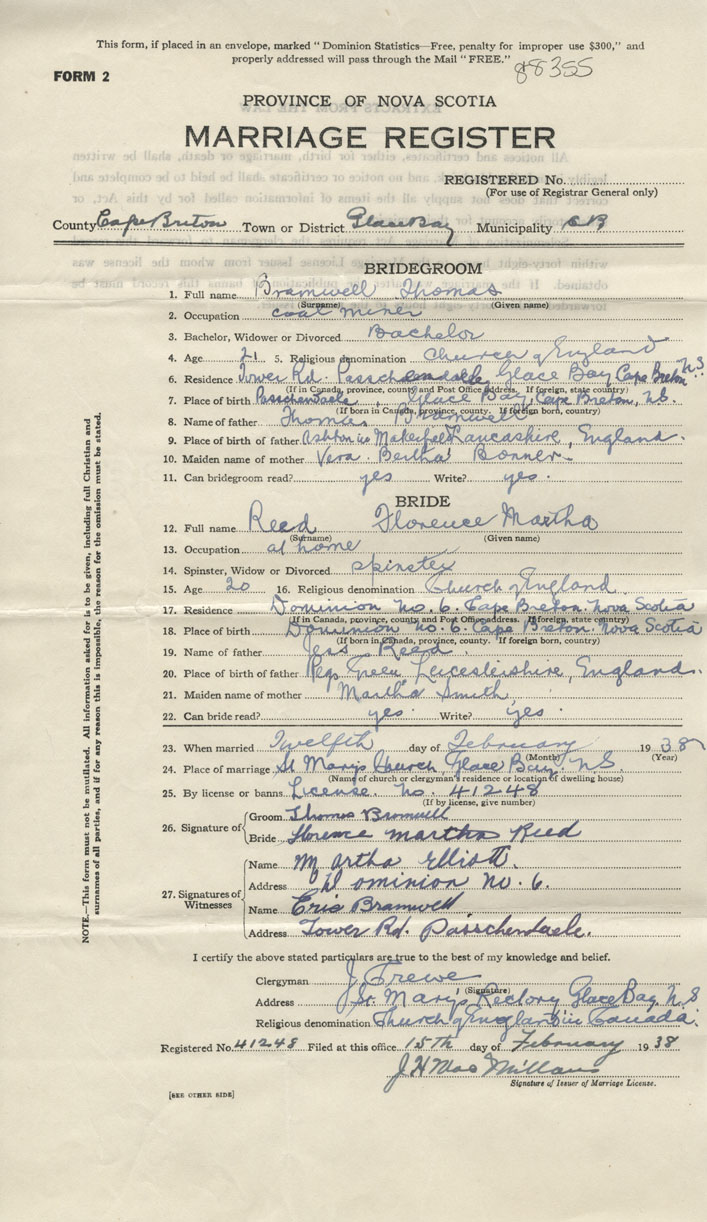 This form, if placed in an envelope, marked "Dominion Statistics—Free, penalty for improper use $300," and
properly addressed will pass through the Mail "FREE."
88355
FORM 2
PROVINCE OF NOVA SCOTIA
MARRIAGE REGISTER
REGISTERED No.
(For use of Registrar General only)
County Cape Breton Town or District Glace Bay Municipality C B
BRIDEGROOM
1. Full name Bramwell Thomas
(Surname) (Given name)
2. Occupation coal miner
3. Bachelor, Widower or Divorced Bachelor
4. Age 21 5. Religious denomination Church of England
6. Residence Tower Rd. Passchendaele, Glace Bay Cape Breton N.S
(If in Canada, province, county and Post Office address. If foreign, state country)
7. Place of birth Passchendaele, Glace Bay, Cape Breton, N.S.
(If born in Canada, province, county. If foreign born, country)
8. Name of father Thomas Bramwell
9. Place of birth of father Ashton in Makerfield Lancashire, England.
10. Maiden name of mother Vera Bertha Bonner
11. Can bridegroom read? yes Write? yes.
BRIDE
12. Full name Reed Florence Martha
(Surname) (Given name)
13. Occupation at home
14. Spinster, Widow or Divorced spinster
15. Age 20 16. Religious denomination Church of England
17. Residence Dominion No. 6. Cape Breton. Nova Scotia
(If in Canada, province, county and Post Office address. If foreign, state country)
18. Place of birth Dominion No. 6. Cape Breton. Nova Scotia
(If born in Canada, province, county. If foreign born, country)
19. Name of father Jess Reed.
20. Place of birth of father Green, Leicestershire, England.
21. Maiden name of mother Martha Smith
22. Can bride read? yes. Write? yes.
23. When married Twelfth day of February 1938
(Month) (Year)
24. Place of marriage St Marys Church, Glace Bay. N.S.
(Name of church or clergyman's residence or location of dwelling house)
25. By license or banns License. No. 41248
(If by license, give number)
26. Signature of Groom Thomas Bramwell
Bride Florence Martha Reed
27. Signatures of Witnesses Name Martha Elliott.
Address Dominion No. 6.
Name Eric Bramwell
Address Tower Rd. Passchendaele.
I certify the above stated particulars are true to the best of my knowledge and belief.
Clergyman J. Trewe
(Signature)
Address St. Marys Rectory Glace Bay. N.S
Religious denomination Church of England in Canada.
Registered No. 41248 Filed at this office 15TH day of February 1938
J H Mac Millan
Signature of Issuer of Marriage License.
[SEE OTHER SIDE]
NOTE.—This form must not be mutilated. All information asked for is to be given, including full Christian and
surnames of all parties, and if for any reason this is impossible, the reason for the omission must be stated.